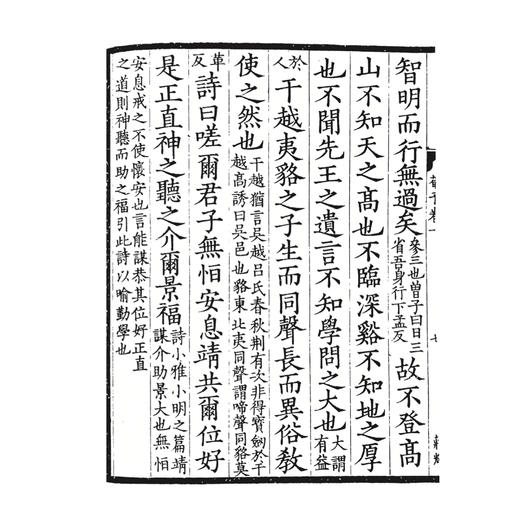 荀子卷一 七 蔣輝
智明而行無過矣參三也曾子曰日三省吾身行下孟反故不登髙
山不知天之髙也不臨深谿不知地之厚
也不聞先王之遺言不知學問之大也大謂有益
於人干越夷貉之子生而同聲長而異俗敎
使之然也干越猶言吳越吕氏春秋荆有次非得寳劔於干越髙誘曰吳邑也貉東北夷同聲謂啼聲同貉莫
革反詩曰嗟爾君子無恒安息靖共爾位好
是正直神之聽之介爾景福詩小雅小明之篇靖謀介助景大也無恒
安息戒之不使懷安也言能謀恭其位好正直
之道則神聽而助之福引此詩以喻勤學也